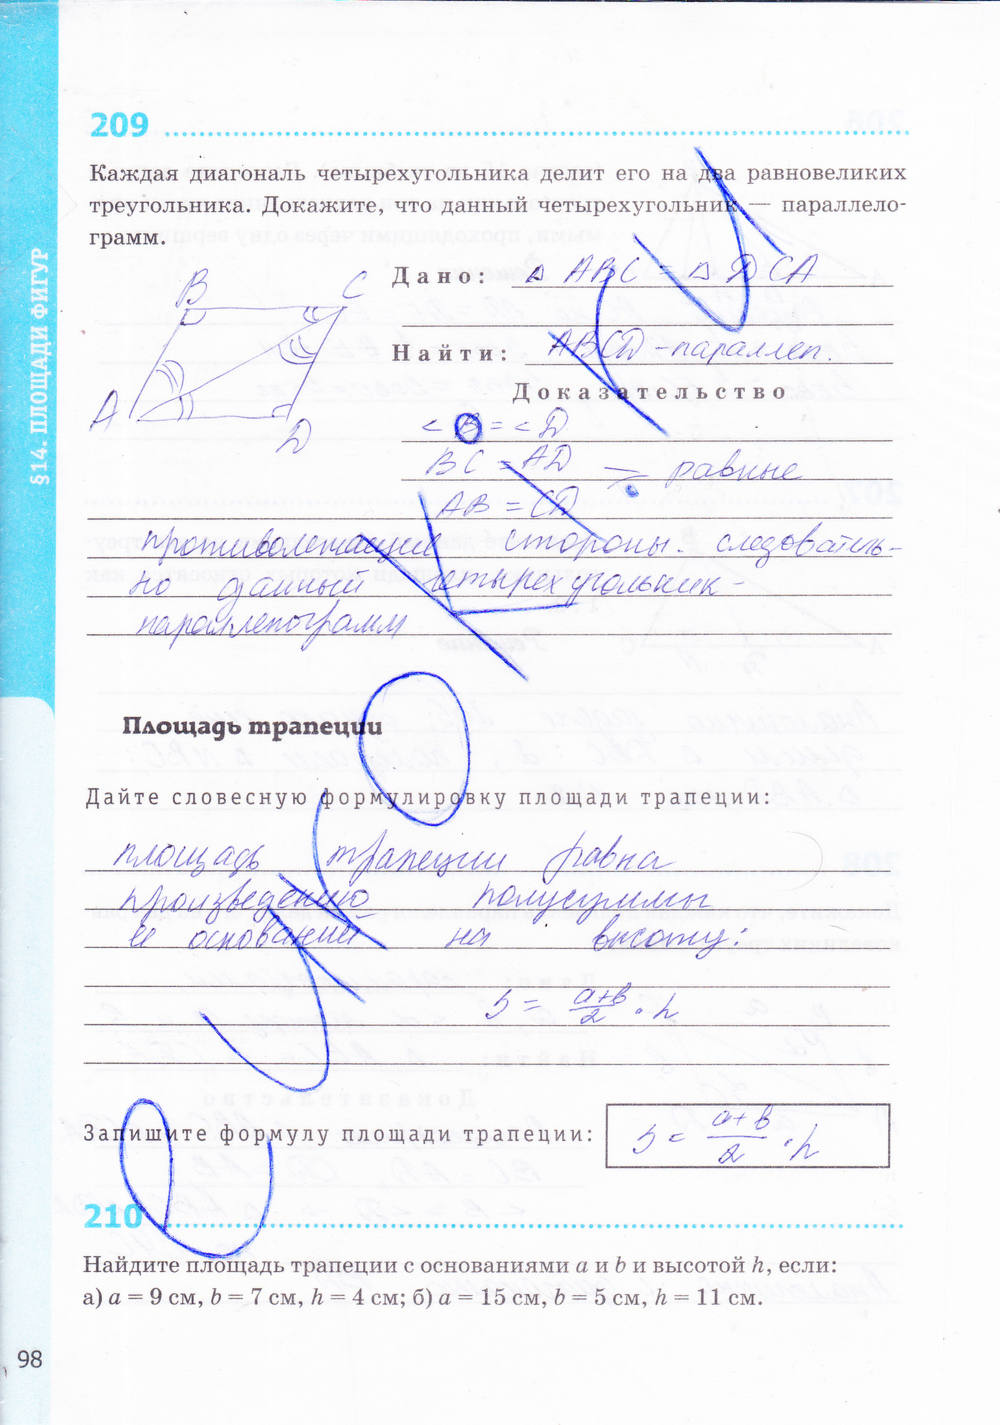 209
Каждая диагональ четырехугольника делит его на два равновеликих
треугольника. Докажите, что данный четырехугольник — параллело-
грамм.
B C
A D
Дано: △ ABC = △ DCA
Найти: ABCD - параллел.
Доказательство
< B = < D
BC = AD => равные
AB = CD
противолежащие стороны. следователь-
но данный четырехугольник -
параллелограмм
Площадь трапеции
Дайте словесную формулировку площади трапеции:
площадь трапеции равна
произведению полусуммы
ее оснований на высоту:
S = a+b/2 · h
Запишите формулу площади трапеции: S = a+b/2 · h
210
Найдите площадь трапеции с основаниями a и b и высотой h, если:
а) a = 9 см, b = 7 см, h = 4 см; б) a = 15 см, b = 5 см, h = 11 см.
98
§14. ПЛОЩАДИ ФИГУР